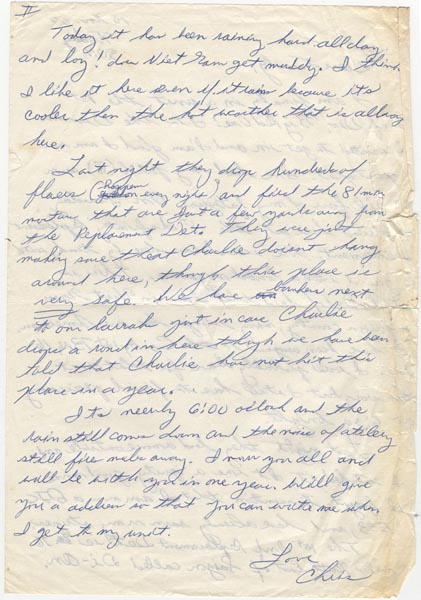 II
Today it has been raining hard all day
and boy! does Viet Nam get muddy. I think
I like it here even if it rains because it's
cooler then the hot weather that is allway
here.
Last night they drop hundreds of
flares (happen every night) and fired the 81 mm
mortars that are just a few yards away from
the Replacement Deta. They were just
making sure that Charlie doesnt hang
around here, though this place is
very safe. We have bunker next
to our barrak just in case Charlie
drops a round in here though we have been
told that Charlie has not hit this
place in a year.
It's neerly 6:00 oclock and the
rain still comes down and the noise of atilery
still fire miles away. I miss you all and
will be with you in one year. Will give
you a address so that you can write me when
I get to my unit.
Love
Chris